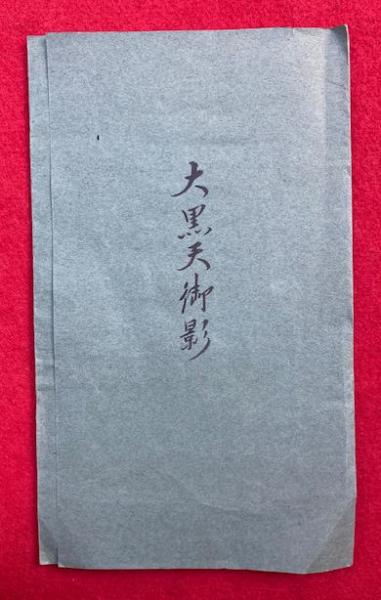 大黒天御影